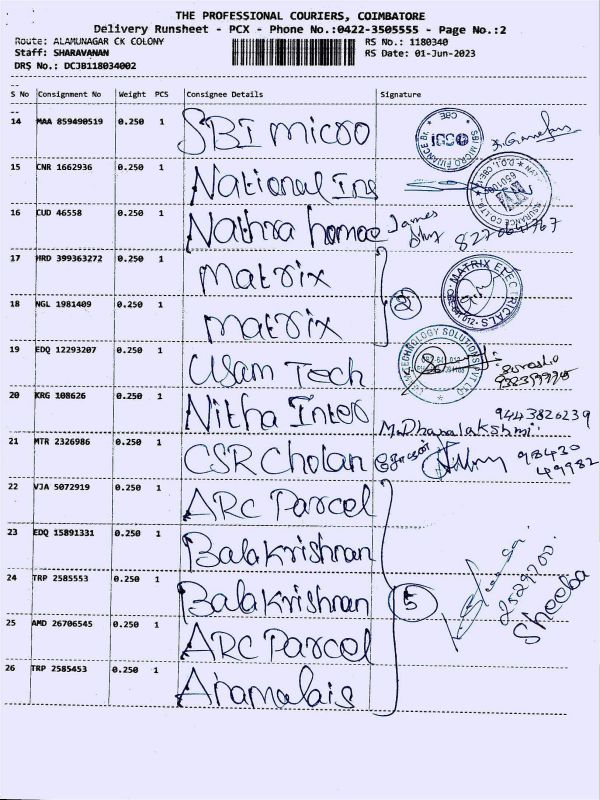 THE PROFESSIONAL COURIERS, COIMBATORE
Delivery Runsheet - PCX - Phone No.:0422-3505555 - Page No.:2
Route: ALAMUNAGAR CK COLONY RS No.: 1180340
Staff: SHARAVANAN RS Date: 01-Jun-2023
DRS No.: DCJB118034002
S No Consignment No Weight PCS Consignee Details Signature
14 MAA 859490519 0.250 1 SBI micro
15 CNR 1662936 0.250 1 National Ins
16 CUD 46558 0.250 1 Nathra home James 8220641767
17 HRD 399363272 0.250 1 Matrix MATRIX ELECTRICALS
18 NGL 1981409 0.250 1 matrix
19 EDQ 12293207 0.250 1 Usam Tech
20 KRG 108626 0.250 1 Nitha Inter M.Dhanalakshmi. 9443820239
21 MTR 2326986 0.250 1 CSR Cholan 98430 49982
22 VJA 5072919 0.250 1 ARC Parcel
23 EDQ 15891331 0.250 1 Balakrishnan
24 TRP 2585553 0.250 1 Balakrishnan 5 Sheeba
25 AMD 26706545 0.250 1 ARC Parcel
26 TRP 2585453 0.250 1 Anamalais